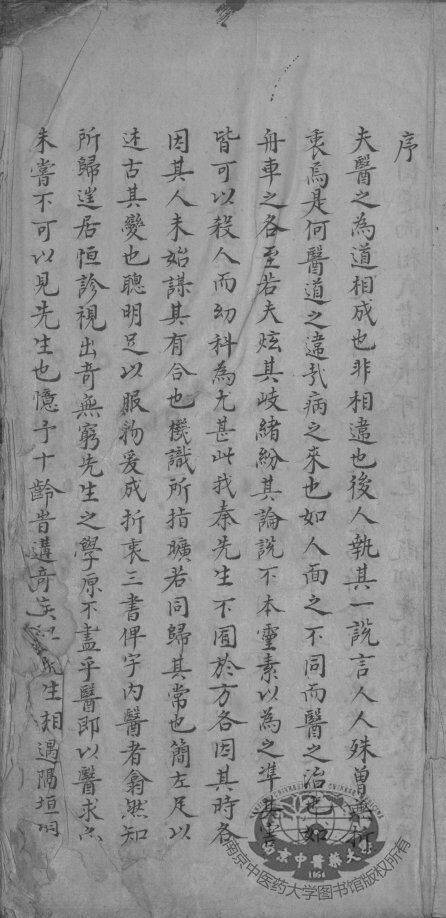 序
夫醫之為道相成也非相違也後人執其一說言人人殊曾無折
衷焉是何醫道之違哉病之來也如人面之不同而醫之治也如
舟車之各至若夫炫其歧緒紛其論說不本靈素以為之準其書
皆可以殺人而幼科為尤甚此我秦先生不囿於方各因其時各
因其人未始謀其有合也機識所指曠若同歸其常也簡左足以
述古其變也聰明足以服物爰成折衷三書俾宇內醫者翕然知
所歸迨居恒診視出奇無窮先生之學原不盡乎醫即以醫求亦
未嘗不可以見先生也憶予十齡時遘奇先生相遇隔垣洞
南京中医药大学图书馆版权所有
1954